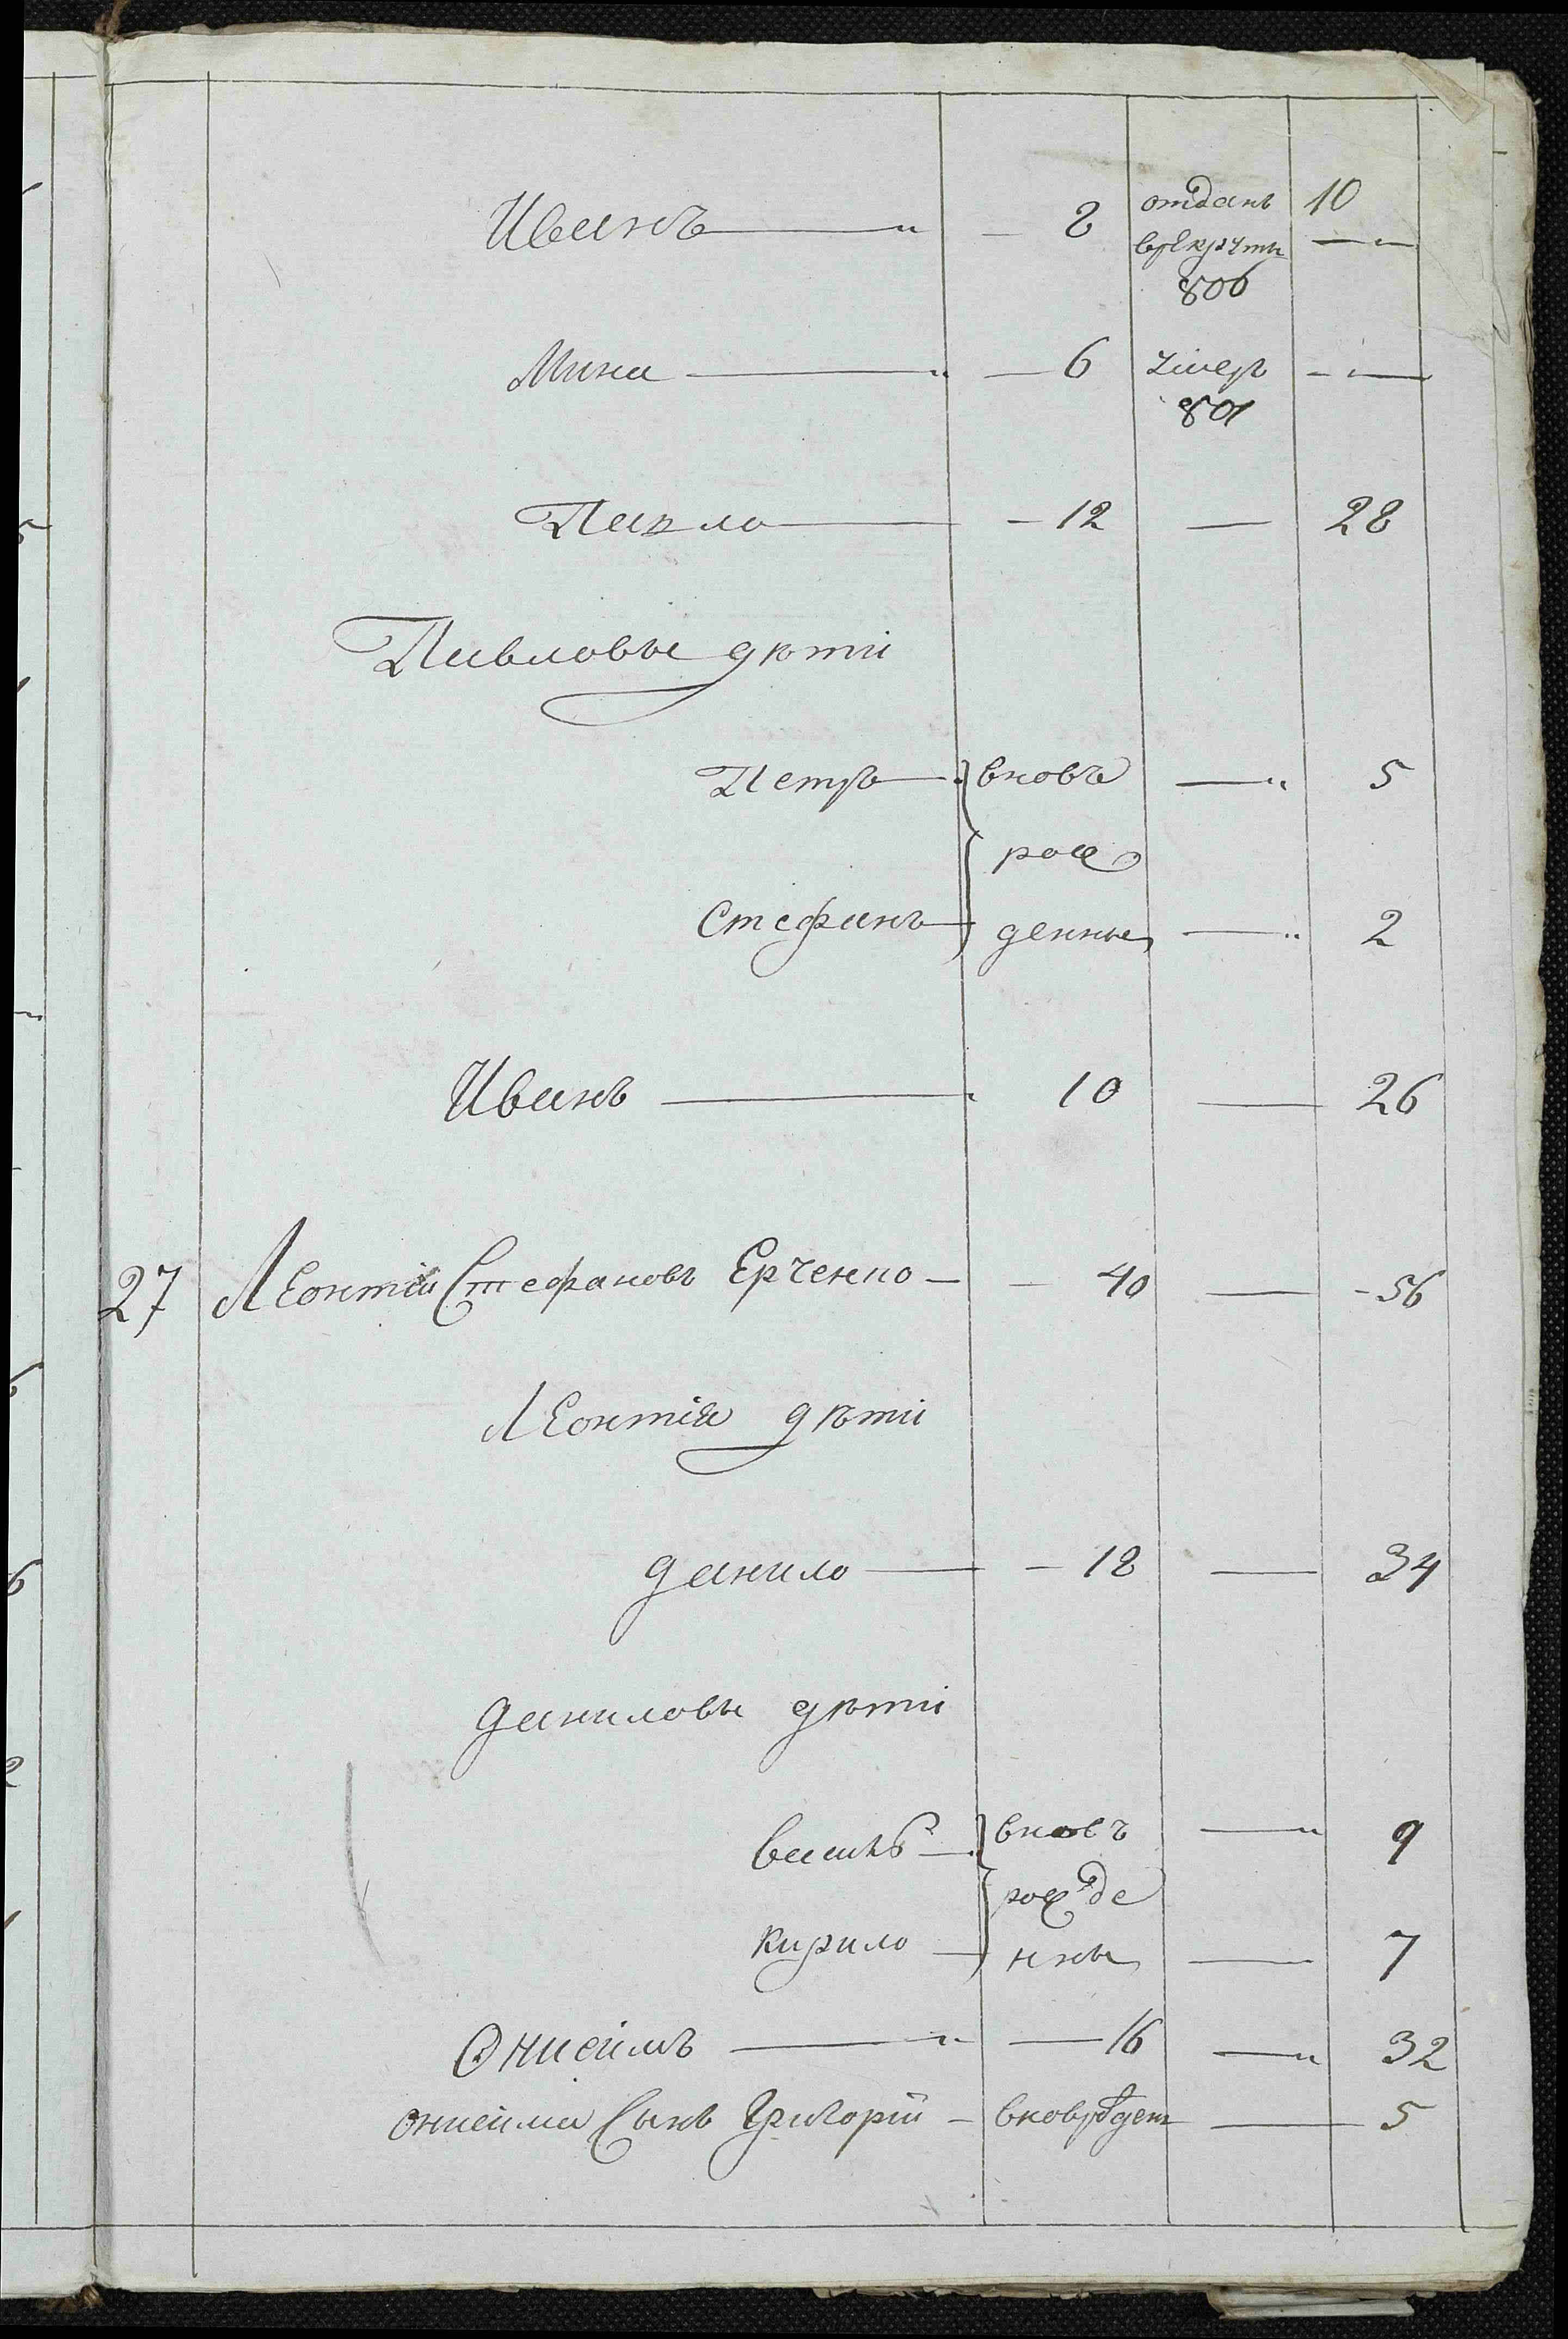 Иванъ — 8 отданъ 10
врекруты —
806
Мина — 6 умеръ —
801
Павло — 12 — 28
Павловы дѣти
Петръ — вновь — 5
рож
Стефанъ — денные — 2
Иванъ — 10 — 26
27 Леонтій Стефановъ Ерченко — 40 — 56
Леонтія дѣти
данило — 18 — 34
даниловы дѣти
василь — вновъ — 9
рожде
кирило — нны — 7
Онисимъ — 16 — 32
онисима Сынъ Григорій — — 5